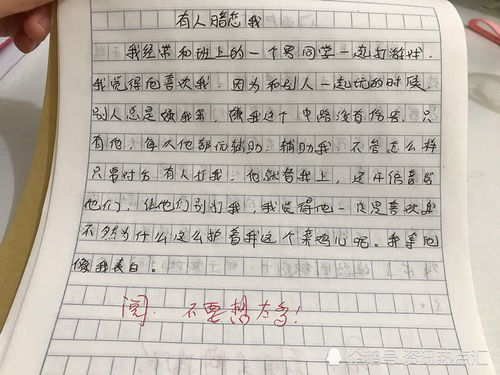 有人暗恋我
我经常和班上的一个男同学一起打游戏,
我觉得他喜欢我,因为和别人一起玩的时候,
别人总是嫌我菜,嫌我这个中路没有伤害,只
有他,每次他都优辅助,辅助我,不管怎么样
只要对面有人打我,他就替我上,还开语音骂
他们,让他们别打我,我觉得他一定是喜欢我
不然为什么这么护着我这个菜鸡儿呢。我等他
像我表白。
阅. 不要想太多!
企鹅号 资讯热点汇